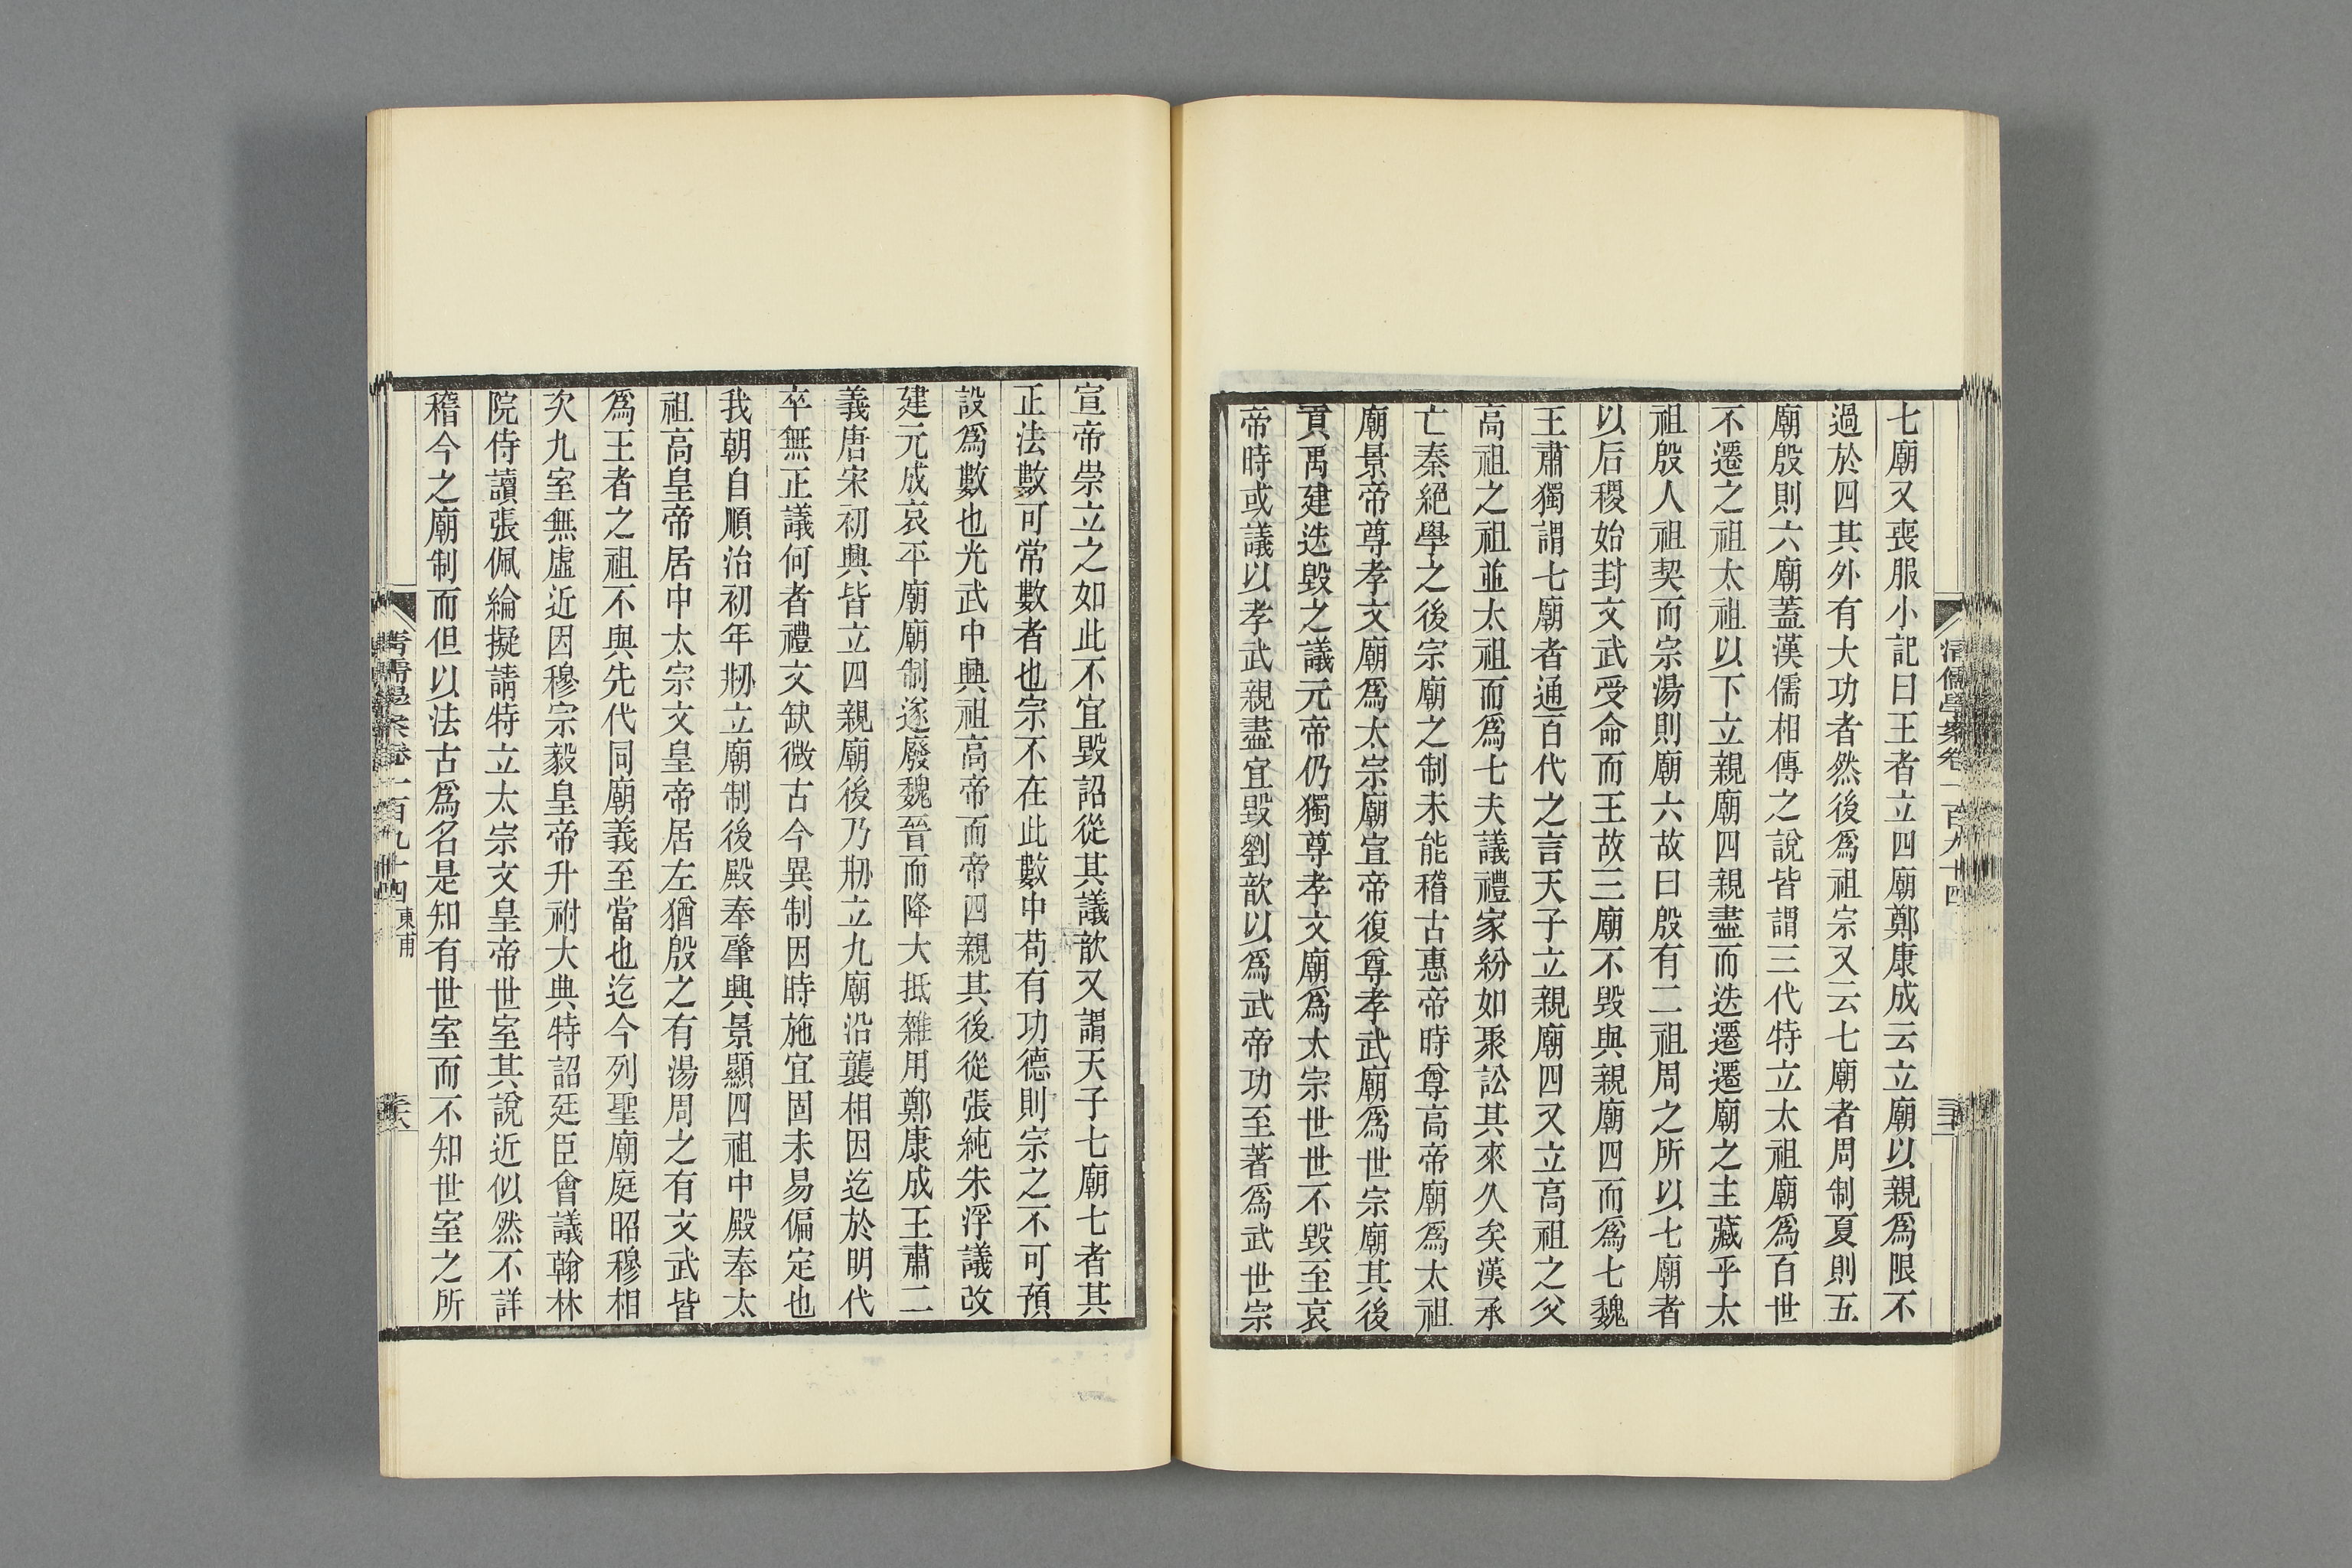 七廟又喪服小記曰王者立四廟鄭康成云立廟以親爲限不
過於四其外有大功者然後爲祖宗又云七廟者周制夏則五
廟殷則六廟蓋漢儒相傳之說皆謂三代特立太祖廟爲百世
不遷之祖太祖以下立親廟四親盡而迭遷遷廟之主藏乎太
祖殷人祖契而宗湯則廟六故曰殷有二祖周之所以七廟者
以后稷始封文武受命而王故三廟不毀與親廟四而爲七魏
王肅獨謂七廟者通百代之言天子立親廟四又立高祖之父
高祖之祖並太祖而爲七夫議禮家紛如聚訟其來久矣漢承
亡秦絕學之後宗廟之制未能稽古惠帝時尊高帝廟爲太祖
廟景帝尊孝文廟爲太宗廟宣帝復尊孝武廟爲世宗廟其後
貢禹建迭毀之議元帝仍獨尊孝文廟爲太宗世世不毀至哀
帝時或議以孝武親盡宜毀劉歆以爲武帝功至著爲武世宗
清儒學案卷一百九十四
宣帝崇立之如此不宜毀詔從其議歆又謂天子七廟七者其
正法數可常數者也宗不在此數中苟有功德則宗之不可預
設爲數也光武中興祖高帝而帝四親其後從張純朱浮議改
建元成哀平廟廟制遂廢魏晉而降大抵雜用鄭康成王肅二
義唐宋初興皆立四親廟後乃剙立九廟沿襲相因迄於明代
卒無正議何者禮文缺微古今異制因時施宜固未易偏定也
我朝自順治初年剙立廟制後殿奉肇興景顯四祖中殿奉太
祖高皇帝居中太宗文皇帝居左猶殷之有湯周之有文武皆
爲王者之祖不與先代同廟義至當也迄今列聖廟庭昭穆相
次九室無虛近因穆宗毅皇帝升祔大典特詔廷臣會議翰林
院侍讀張佩綸擬請特立太宗文皇帝世室其說近似然不詳
稽今之廟制而但以法古爲名是知有世室而不知世室之所
清儒學案卷一百九十四 東甫